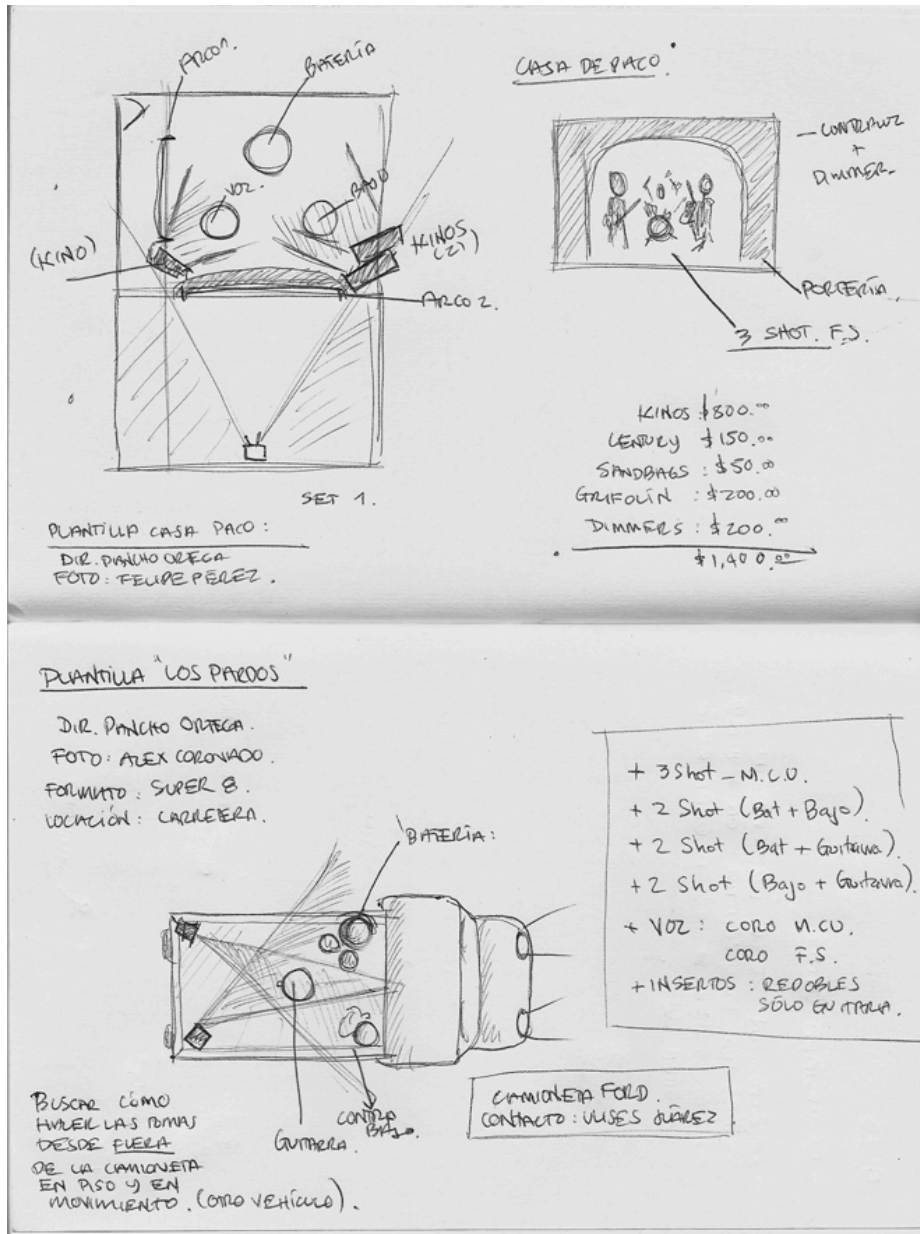 ARCO 1.
BATERÍA
VOZ.
BAJO
(KINO)
KINOS
(2)
ARCO 2.
SET 1.
PLANTILLA CASA PACO:
DIR. PANCHO ORTEGA
FOTO: FELIPE PÉREZ.
CASA DE PACO.
— CONTRALUZ
+
DIMMER.
PORTERÍA.
3 SHOT. F.S.
KINOS $800.00
CENTURY $150.00
SANDBAGS: $50.00
GRIFOLÍN: $200.00
DIMMERS: $200.00
$1,400.00
PLANTILLA "LOS PARDOS"
DIR. PANCHO ORTEGA.
FOTO: ALEX CORONADO.
FORMATO: SUPER 8.
LOCACIÓN: CARRETERA.
BATERÍA:
GUITARRA.
CONTRA
BAJO.
BUSCAR CÓMO
HACER LAS TOMAS
DESDE FUERA
DE LA CAMIONETA
EN PISO Y EN
MOVIMIENTO. (OTRO VEHÍCULO).
CAMIONETA FORD.
CONTACTO: ULISES JUÁREZ
+ 3 Shot – M.C.U.
+ 2 Shot (Bat + Bajo).
+ 2 Shot (Bat + Guitarra).
+ 2 Shot (Bajo + Guitarra).
+ VOZ: CORO M.CU.
CORO F.S.
+ INSERTOS: REDOBLES
SÓLO GUITARRA.